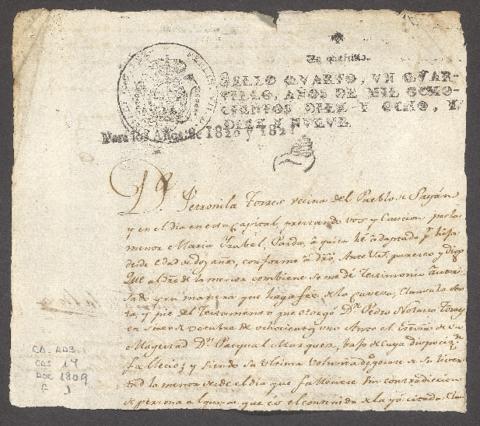 Un quartillo.
SELLO QVARTO, VN QVAR-
TILLO, AÑOS DE MIL OCHO-
CIENTOS DIEZ Y OCHO, Y
DIEZ Y NUEVE.
Para los Años de 1820 y 1821
Dª Petronila Torres vecina del Pueblo de Sayán
y en el dia en esta Capital, prestando vos y Caucion por la
menor Maria Ysabel, Parda, a quien hé adaptado p.r hija
desde edad de dos años, conforme á dro Ante V. parezco y digo
Que al dro de la menor combiene se me dé Testimonio autori-
sado y en manera que haga fee de la Cavesa, Clausula
y pie del Testamento que otorgó Dn Pedro Nolasco Torres
en seis de Octubre de ochocientos uno Ante el Esno de Su
Magestad Dn Pasqual, bajo de cuya disposicion
fallecio; y siendo su ultima voluntad de su liver-
tad la menor desde el dia que falleciere sin contradiccion
de persona alguna que és el contenido de la yá citada Clau
CO. AD3
CAS 14
DOC 1809
F. 1